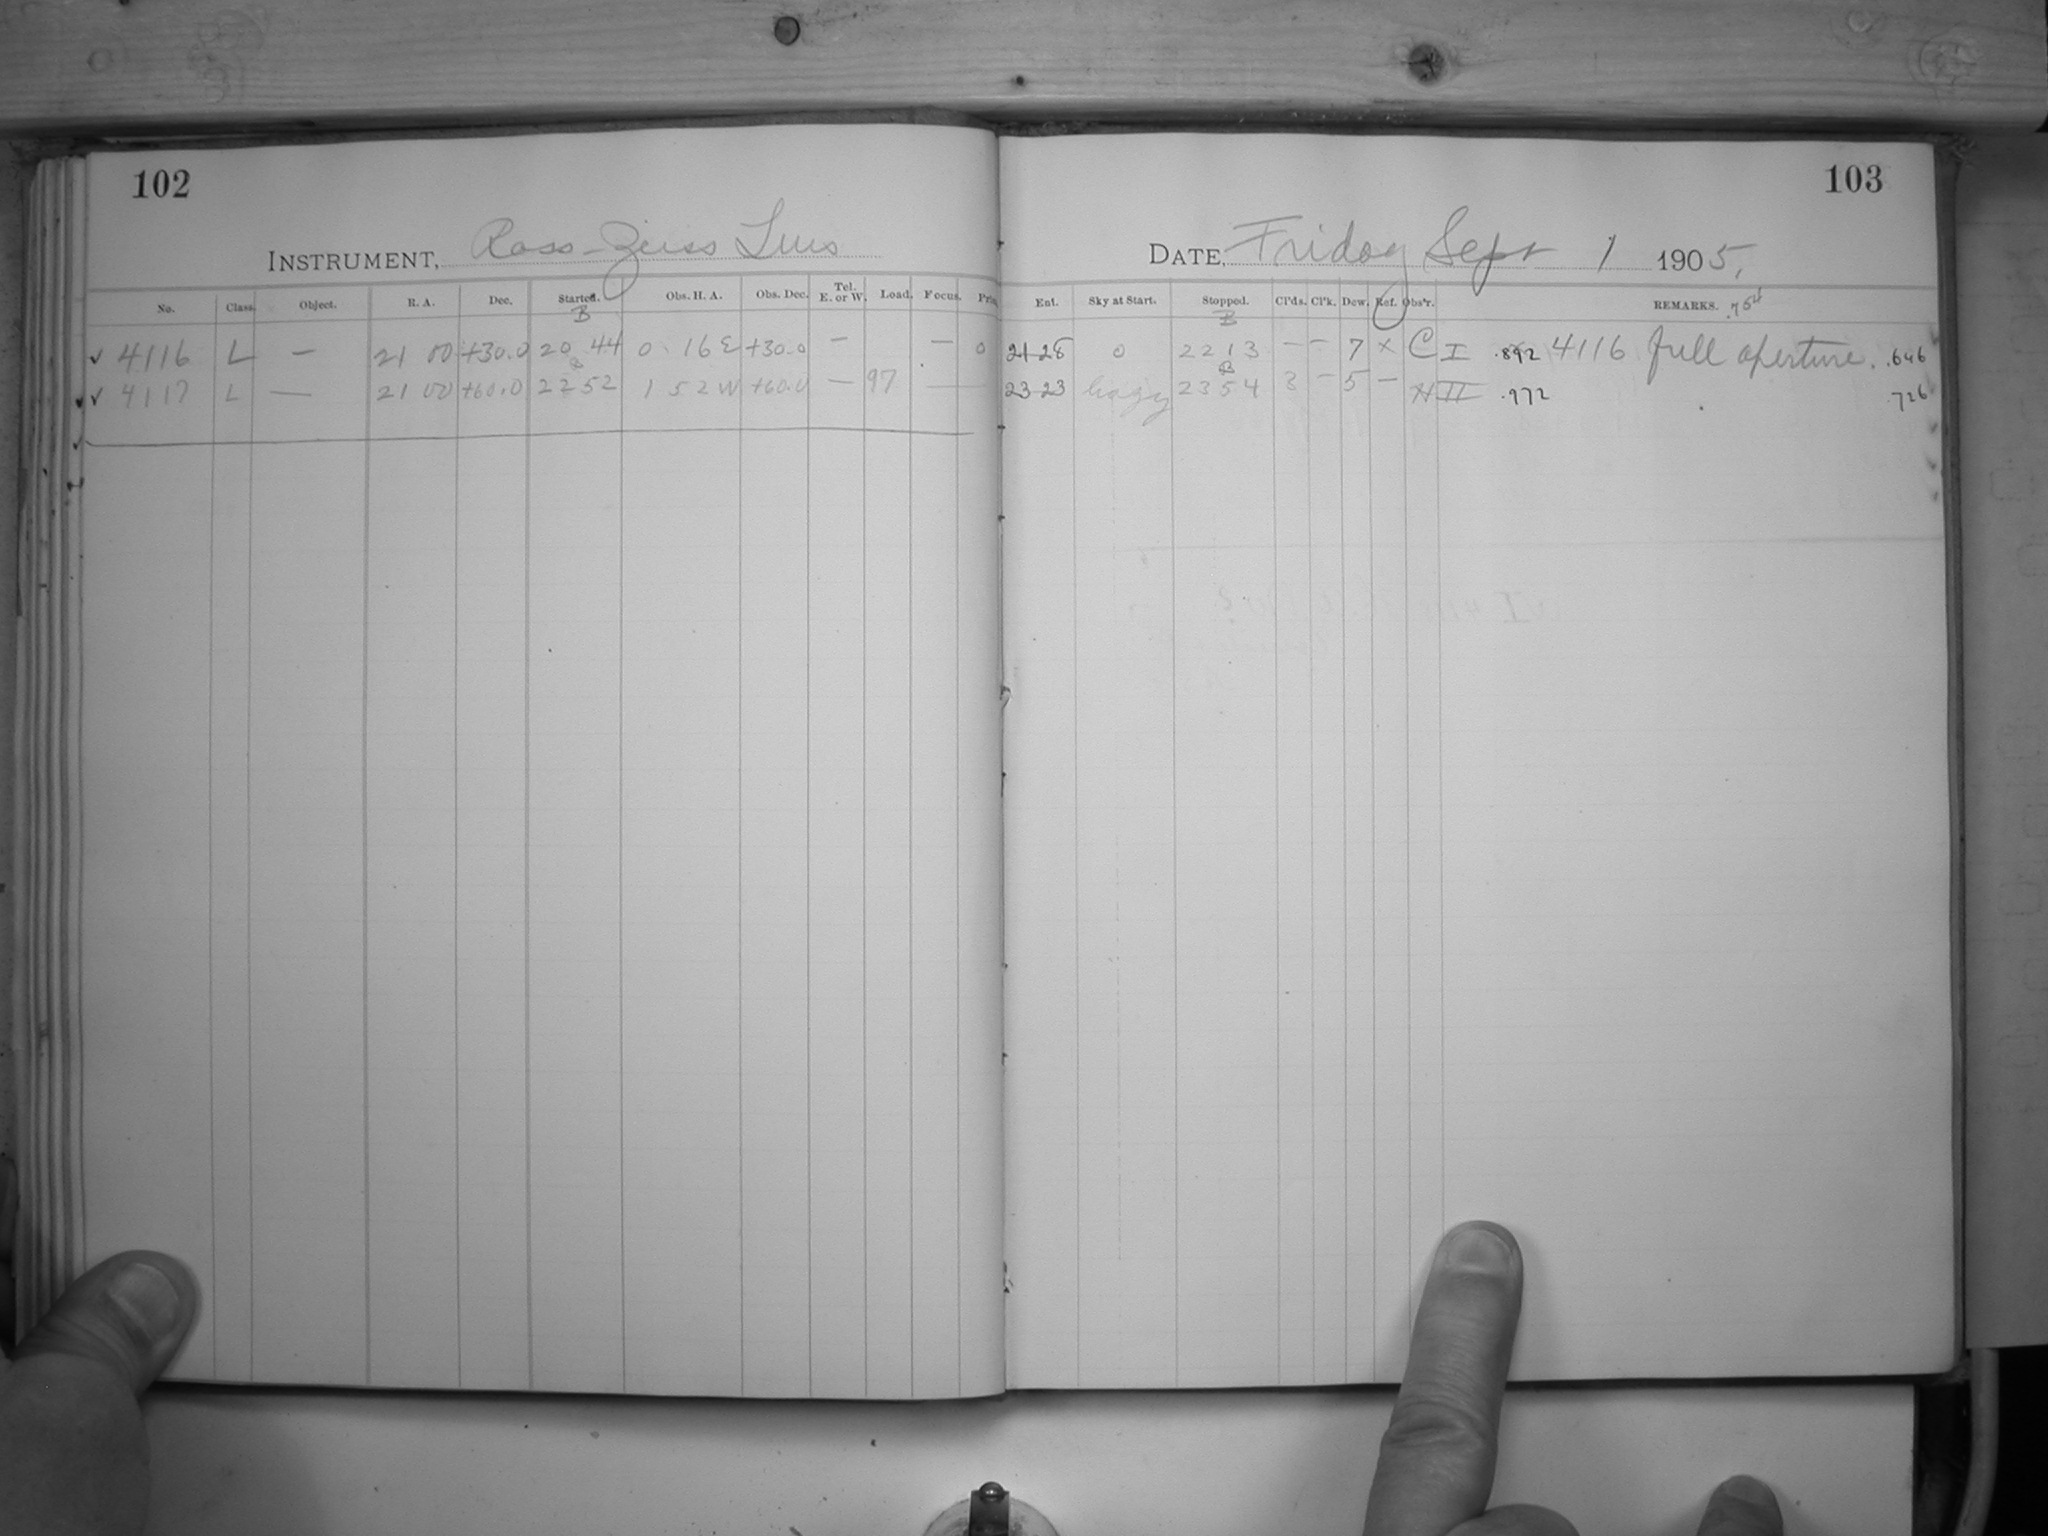 102
103
INSTRUMENT, Ross-Zeiss Lens
DATE, Friday Sept 1 1905,
No. Class. Object. R. A. Dec. Started. Obs. H. A. Obs. Dec. Tel. E. or W. Load. Focus. Ent. Sky at Start. Stopped. Cl'ds. Cl'k. Dew. Ref. Obs'r. REMARKS. .754
B B
✓ 4116 L — 21 00 +30.0 20 44 0 16 E +30.0 — — 0 21-28 0 22 13 — — 7 × C I .892 4116 full aperture. .646
B B
✓ 4117 L — 21 00 +60.0 22 52 1 52 W +60.0 — 97 — 23-23 hazy 23 54 3 – 5 – H II .972 .726